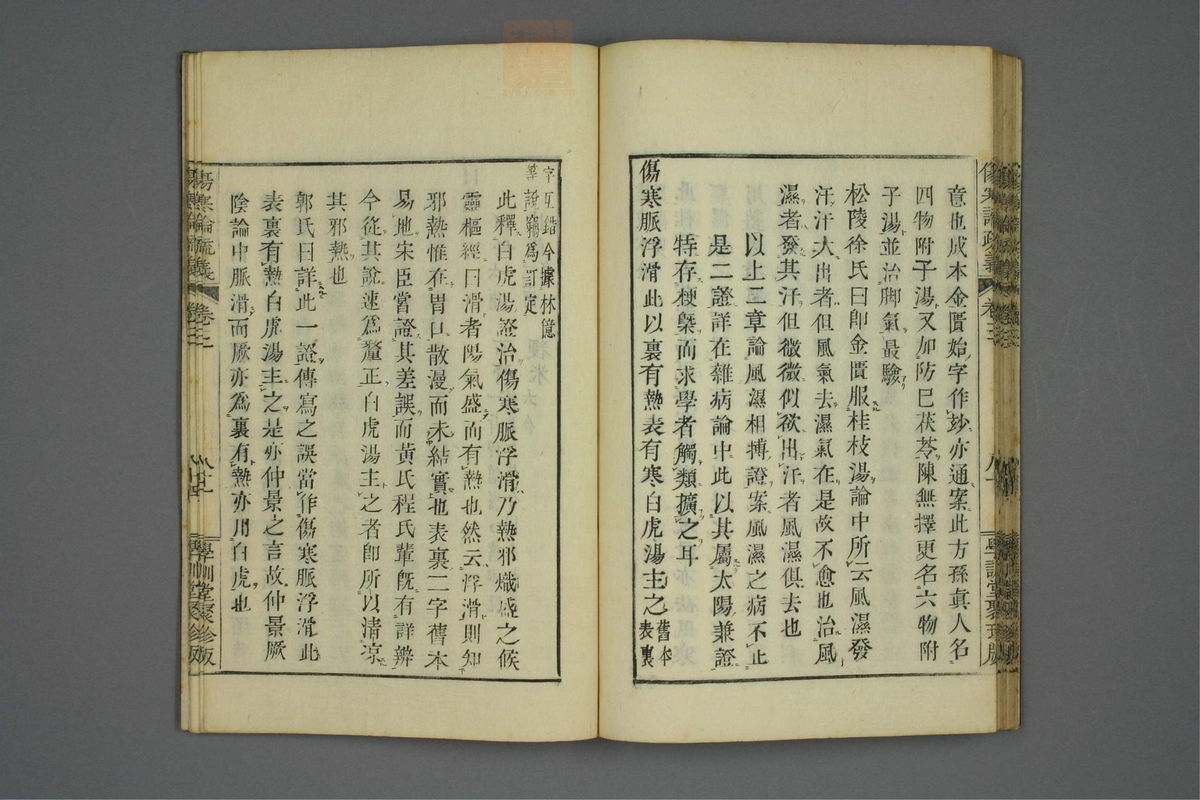 意也成本金匱始字作妙亦通案此方孫眞人名
四物附子湯又加防巳茯苓陳無擇更名六物附
子湯並治脚氣最驗
松陵徐氏曰卽金匱服桂枝湯論中所云風濕發
汗汗大出者但風氣去濕氣在是故不愈也治風
濕者發其汗但微微似欲出汗者風濕俱去也
以上二章論風濕相搏證案風濕之病不止
是二證詳在雜病論中此以其屬太陽兼證
特存梗槩而求學者觸類擴之耳
傷寒脈浮滑此以裏有熱表有寒白虎湯主之舊本表裏
字互錯今據林億等說竊爲訂定
此釋白虎湯證治傷寒脈浮滑乃熱邪熾盛之候
靈樞經曰滑者陽氣盛而有熱也然云浮滑則知
邪熱惟在胃口散漫而未結實也表裏二字舊本
易地宋臣嘗證其差誤而黃氏程氏輩旣有詳辨
今從其說速爲釐正白虎湯主之者卽所以清凉
其邪熱也
郭氏曰詳此一證傳寫之誤當作傷寒脈浮滑此
表裏有熱白虎湯主之是亦仲景之言故仲景厥
陰論中脈滑而厥亦爲裏有熱亦用白虎也
傷寒論疏義
卷三
學訓堂聚珍版